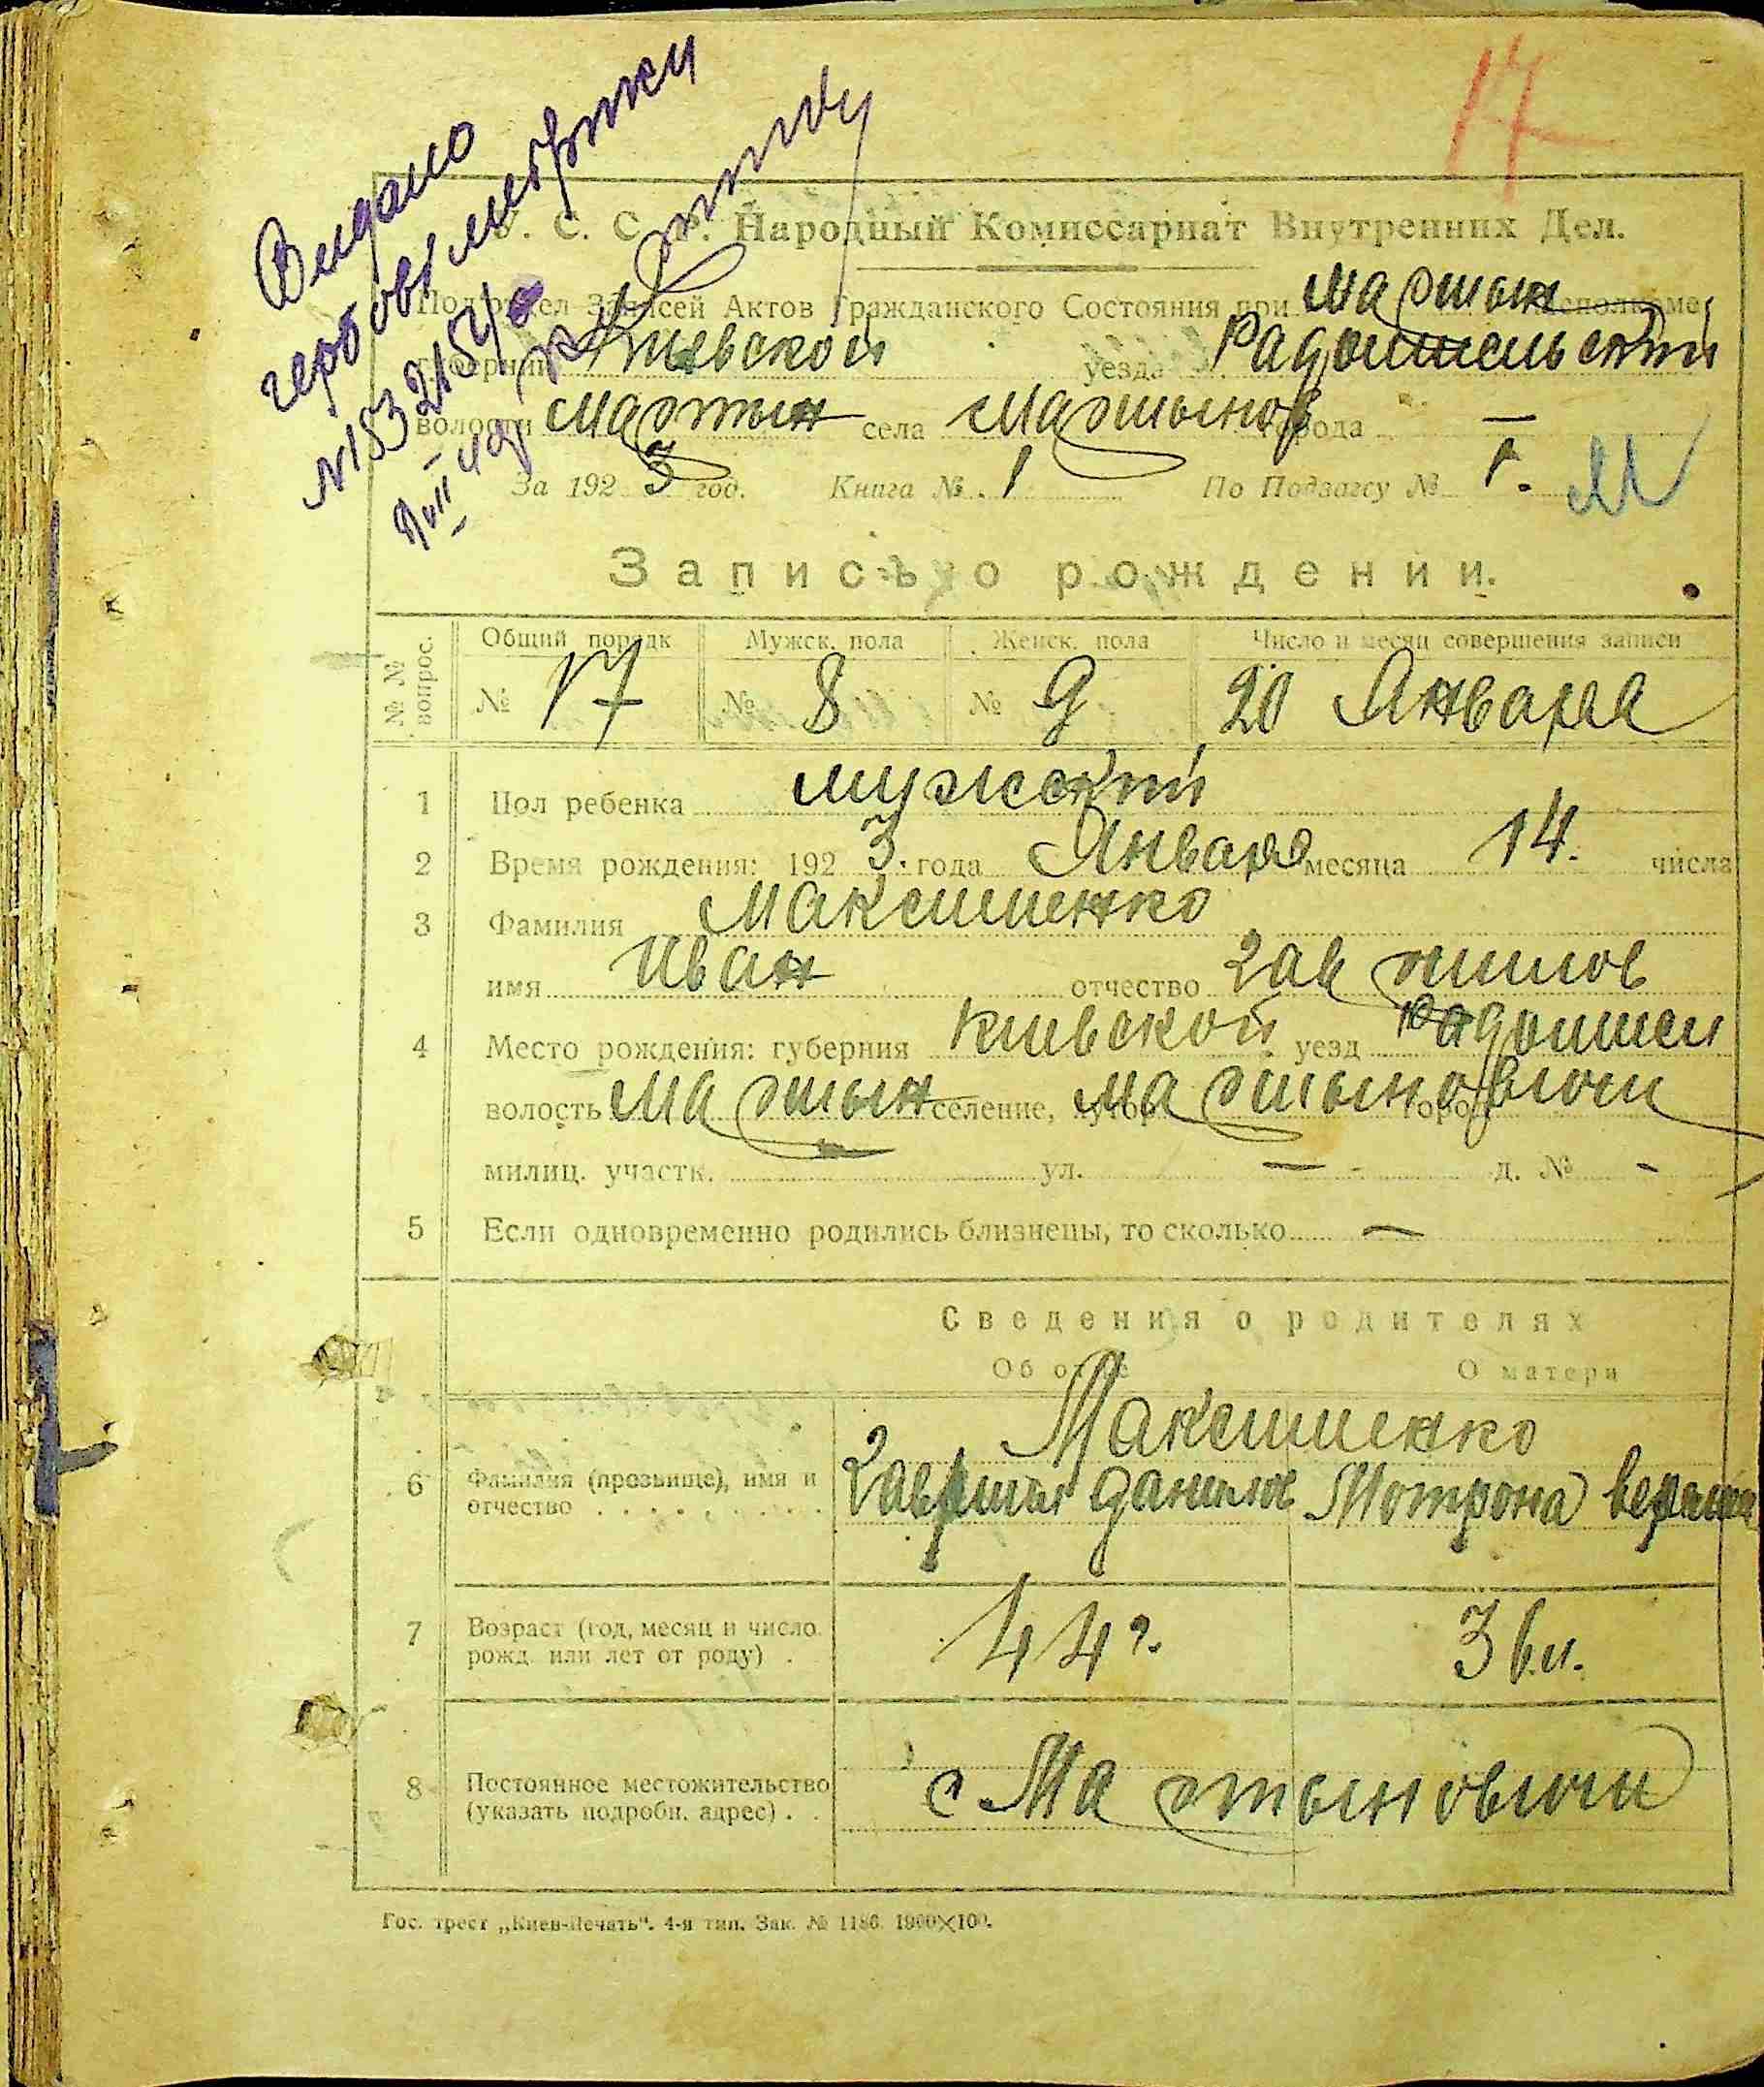 17
Видано
гербові метрики
У. С. С. Р. Народный Комиссариат Внутренних Дел.
Подотдел Записей Актов Гражданского Состояния при Мартын Исполкоме
Губернии Киевской уезда Радомысльский
волости Мартын села Мартынов города —
За 1923 год. Книга № 1 По Подзагсу № 1.
Запись о рождении.
№№ вопрос. Общий порядк Мужск. пола Женск. пола Число и месяц совершения записи
№ 17 № 8 № 9 20 Января
1 Пол ребенка мужский
2 Время рождения: 1923. года Января месяца 14. числа
3 Фамилия Максименко
имя Иван отчество Гаврилов
4 Место рождения: губерния Киевской уезд Радомисл
волость Мартын селение, хутор Мартынович город
милиц. участк. ул. — д. № -
5 Если одновременно родились близнецы, то сколько —
Сведения о родителях
Об отце О матери
Максименко
6 Фамилия (прозвище), имя и Гаврило Данилов Мотрона
отчество
7 Возраст (год, месяц и число 44 г. 36 л.
рожд. или лет от роду) .
8 Постоянное местожительство с Мартынович
(указать подробн. адрес) . .
Гос. трест „Киев-Печать“. 4-я тип. Зак. № 1186. 1900×100.